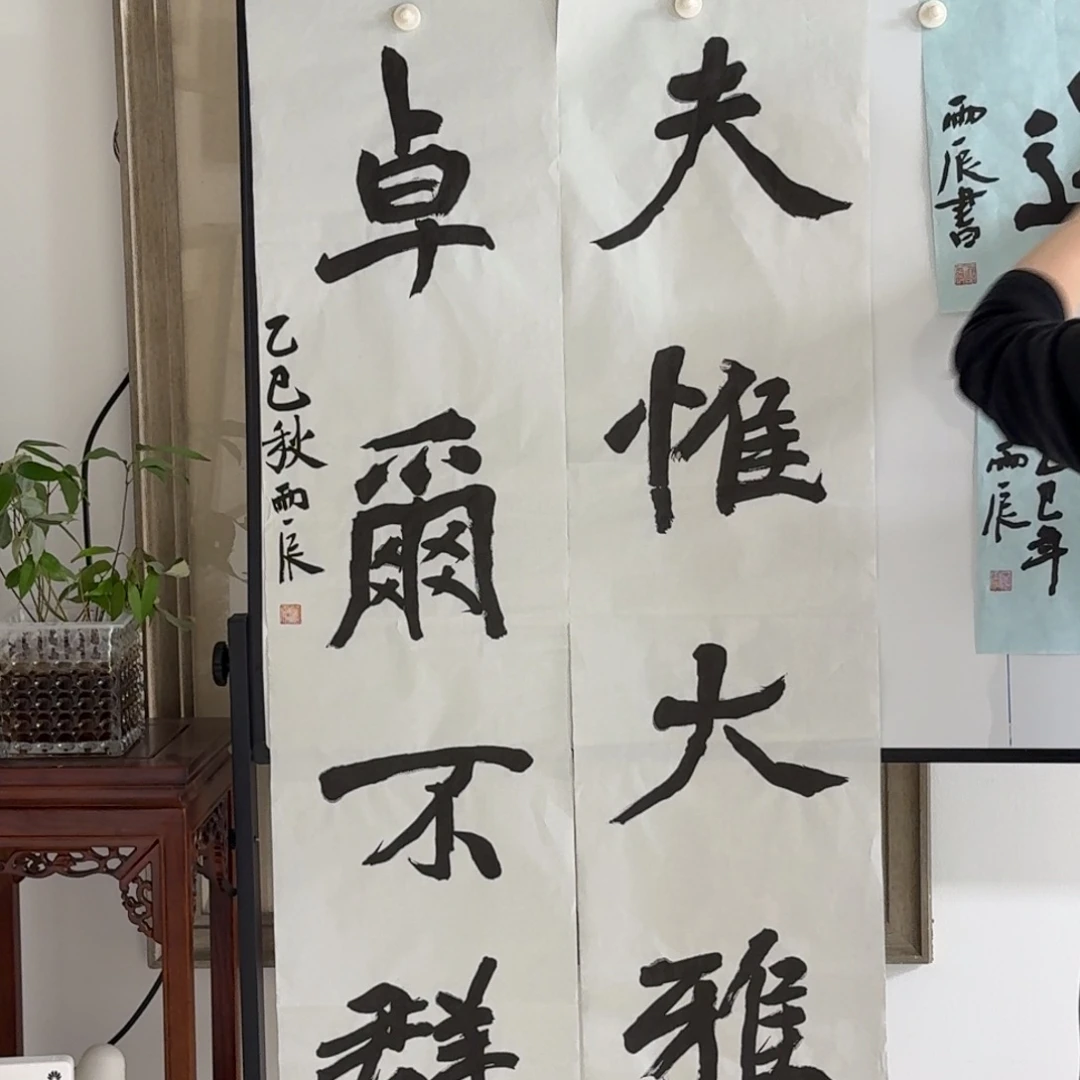 夫惟大雅
卓爾不群
乙巳秋雨辰
雨辰書
乙巳年
雨辰